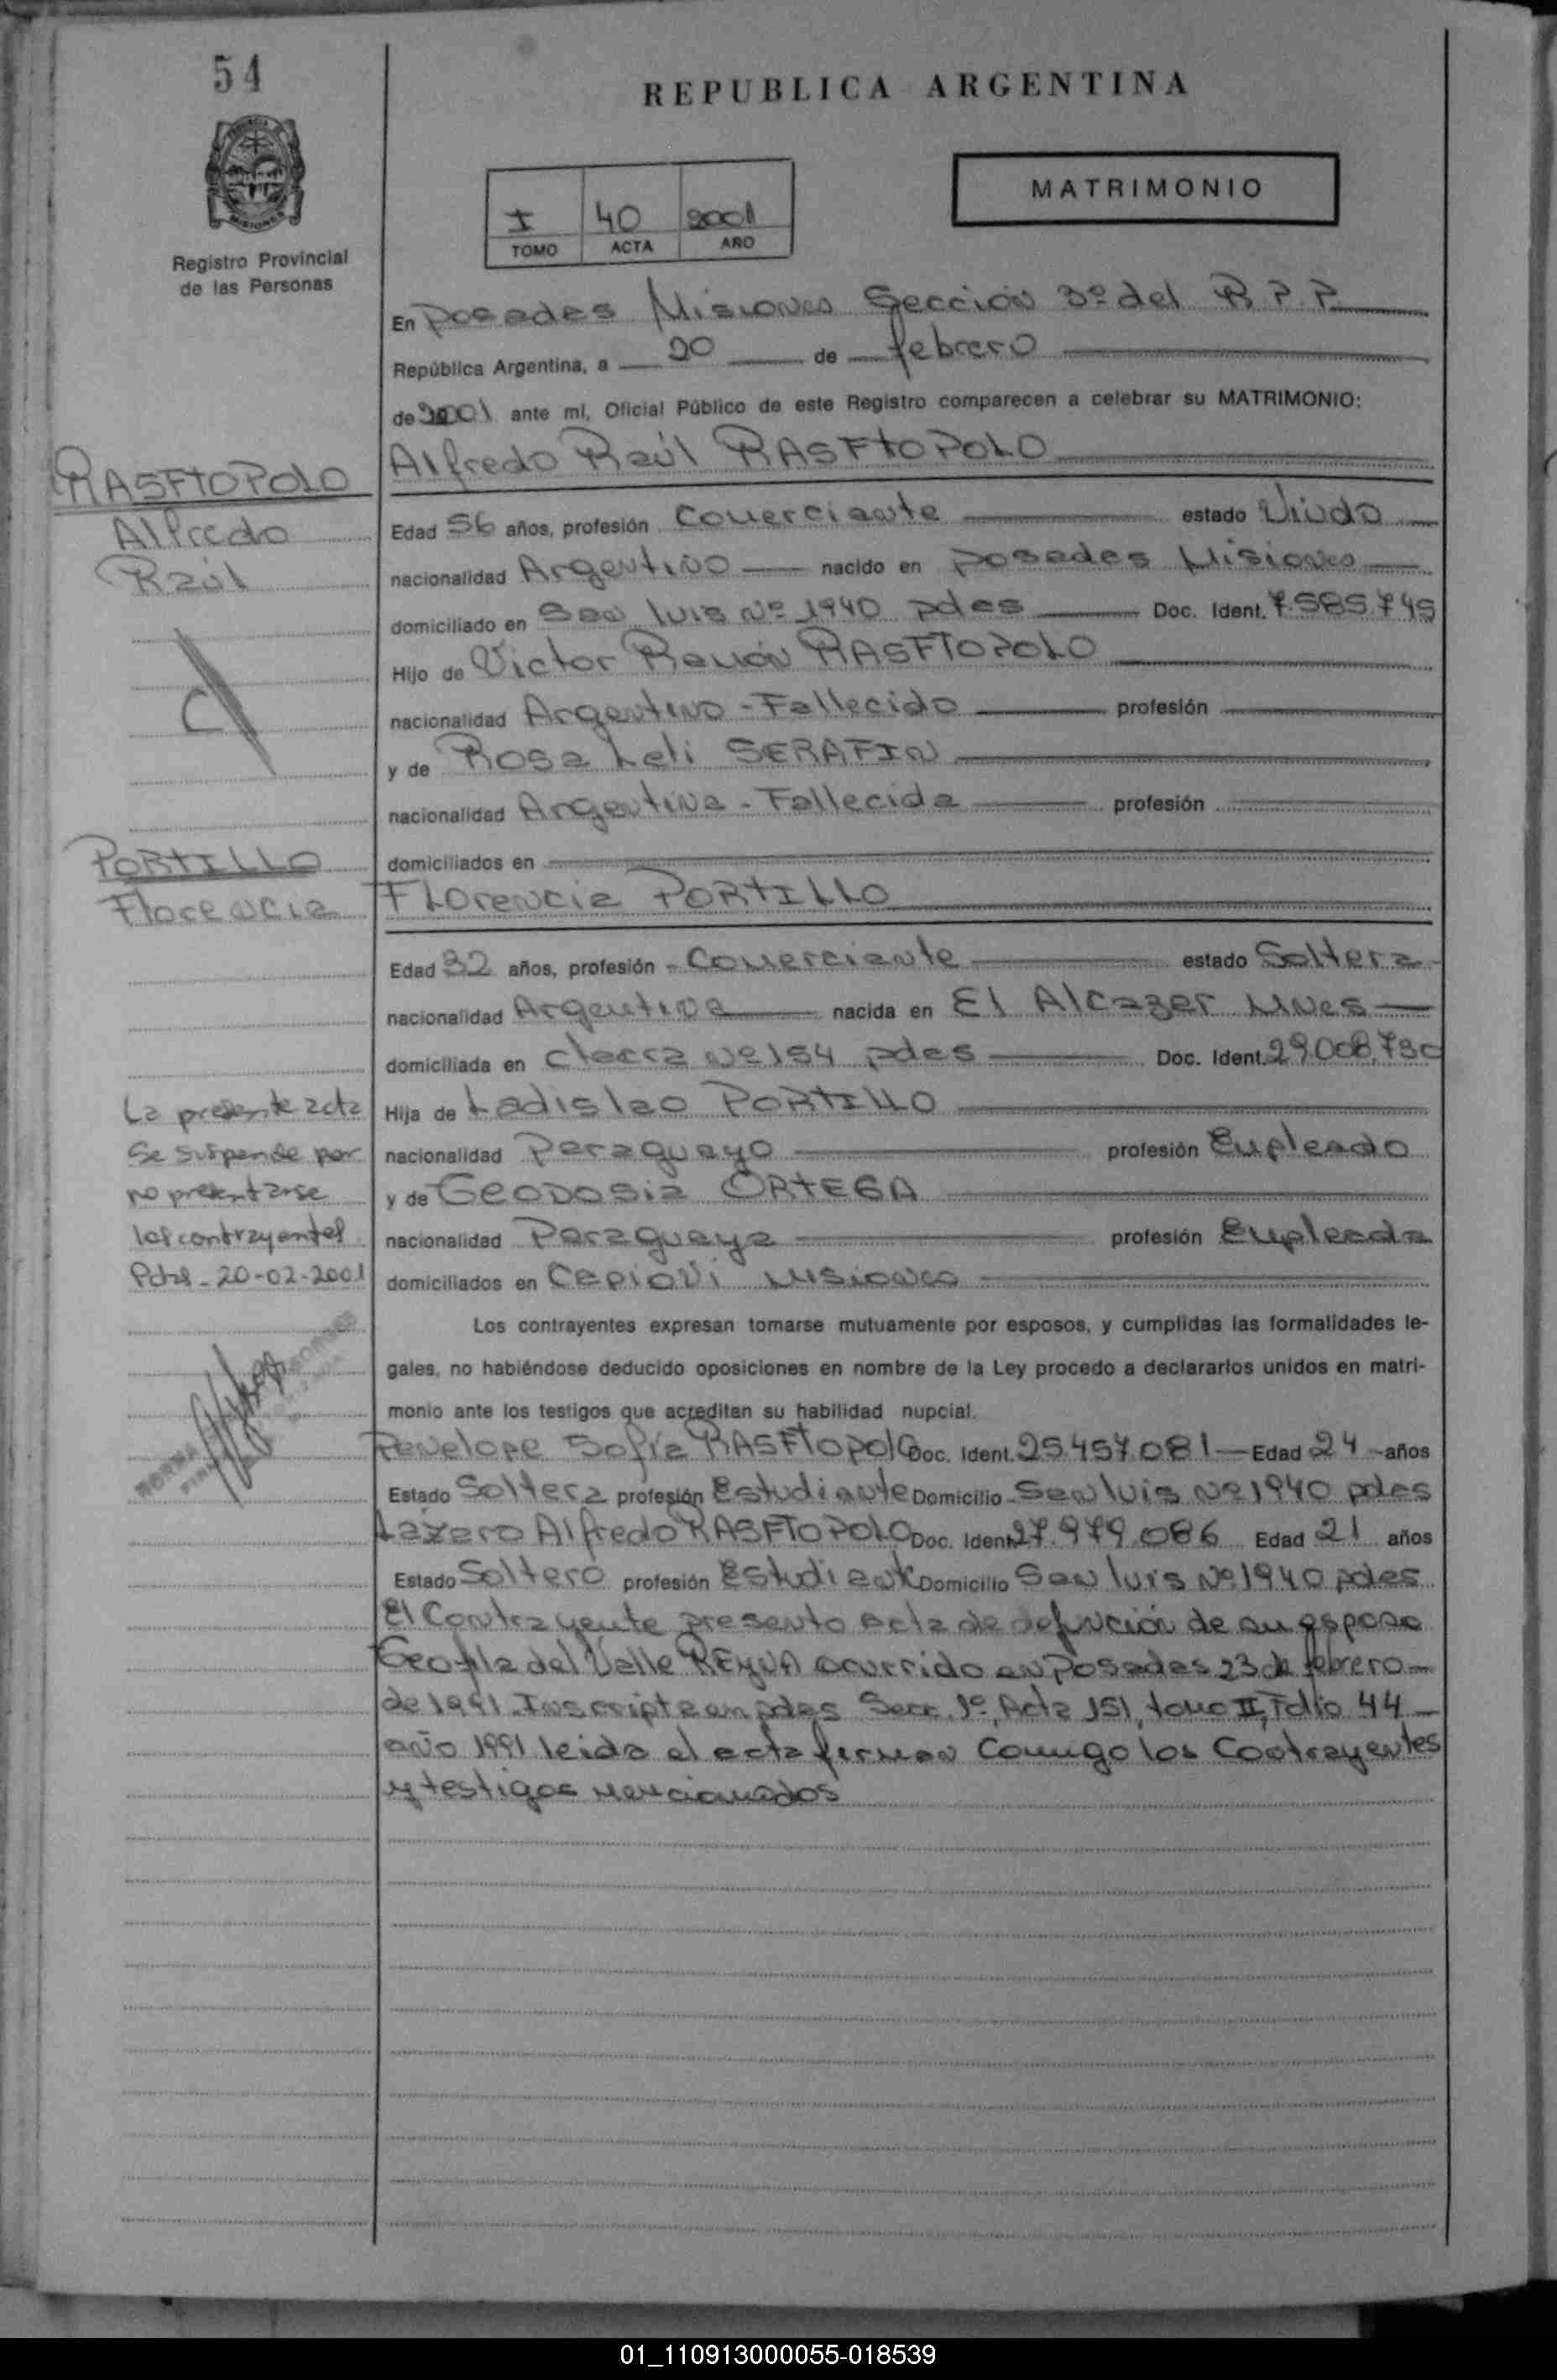 54
REPUBLICA ARGENTINA
MATRIMONIO
I 40 2001
TOMO ACTA AÑO
Registro Provincial
de las Personas
En Posadas Misiones Sección 3º del R.P.P.
República Argentina, a 20 de febrero
de 2001 ante mí, Oficial Público de este Registro comparecen a celebrar su MATRIMONIO:
RASFTOPOLO
Alfredo
Raúl
Alfredo Raúl RASFTOPOLO
Edad 56 años, profesión Comerciante estado Viudo
nacionalidad Argentino nacido en Posadas Misiones
domiciliado en San luis Nº 1940 pdas Doc. Ident. 7.585.745
Hijo de Victor Ramón RASFTOPOLO
nacionalidad Argentino - Fallecido profesión
y de Rosa Leli SERAFIN
nacionalidad Argentina - Fallecida profesión
domiciliados en
PORTILLO
Florencia
Florencia PORTILLO
Edad 32 años, profesión - Comerciante estado Soltera
nacionalidad Argentina nacida en El Alcazar Mnes
domiciliada en Nº 154 pdas Doc. Ident. 29.008.730
Hija de Ladislao PORTILLO
nacionalidad Paraguayo profesión Empleado
y de Geodosia ORTEGA
nacionalidad Paraguaya profesión Empleada
domiciliados en Capiovi Misiones
La presente acta
se suspende por
no presentarse
los contrayentes
Pdas - 20-02-2001
NORMA
Los contrayentes expresan tomarse mutuamente por esposos, y cumplidas las formalidades le-
gales, no habiéndose deducido oposiciones en nombre de la Ley procedo a declararlos unidos en matri-
monio ante los testigos que acreditan su habilidad nupcial.
Penelope Sofía RASFTOPOLO Doc. Ident. 25.457.081 Edad 24 años
Estado Soltera profesión Estudiante Domicilio San luis Nº 1940 pdas
Lázaro Alfredo RASFTOPOLO Doc. Ident. 27.979.086 Edad 21 años
Estado Soltero profesión Estudiante Domicilio San luis Nº 1940 pdas
El Contrayente presento acta de defunción de su esposa
Geofila del Valle REYNA ocurrido en Posadas 23 de febrero
de 1991. Inscripta en pdas Secc. 1º, Acta 151, tomo II, Folio 44
año 1991 leida el acta firman conmigo los Contrayentes
y testigos mencionados
01_110913000055-018539